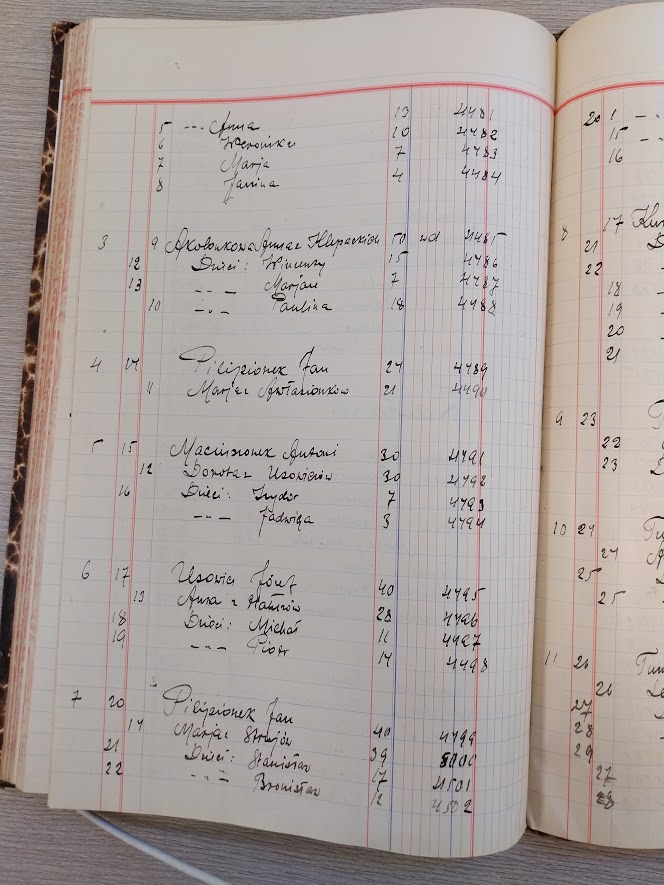 5 -"- Anna 13 4481
6 Weronika 10 4482
7 Marja 7 4483
8 Janina 4 4484
3 9 Anna z 50 wd 4485
12 Dzieci: Wincenty 15 4486
13 -"- Marjan 7 4487
10 -"- Paulina 18 4488
4 14 Pilipionek Jan 24 4489
11 Marja z 21 4490
5 15 Antoni 30 4491
12 Dorota z Usowiczów 30 4492
16 Dzieci: Izydor 7 4493
-"- Jadwiga 3 4494
6 17 Usowicz Józef 40 4495
13 Anna z 28 4496
18 Dzieci: Michał 11 4497
19 -"- Piotr 14 4498
7 20 Pilipionek Jan 40 4499
14 Marja z 39
21 Dzieci: Stanisław 17 4501
22 -"- Bronisław 12 4502
20 1
15
16
8 17
21
22
18
19
20
21
9 23
22
23
10 24
24
25
25
11 26
26
27
28
29
27
28